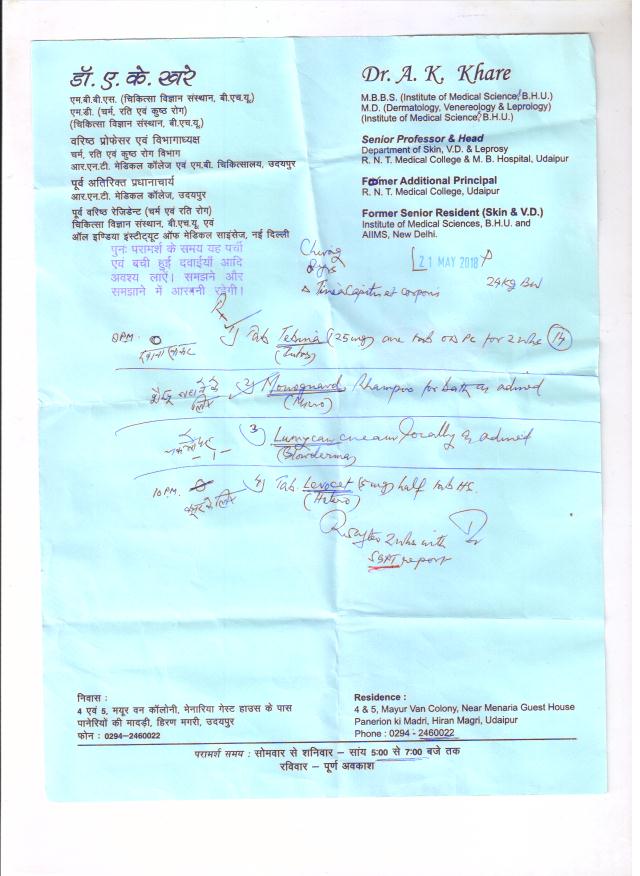 डॉ. ए. के. खरे
एम.बी.बी.एस. (चिकित्सा विज्ञान संस्थान, बी.एच.यू.)
एम.डी. (चर्म, रति एवं कुष्ठ रोग)
(चिकित्सा विज्ञान संस्थान, बी.एच.यू.)
वरिष्ठ प्रोफेसर एवं विभागाध्यक्ष
चर्म, रति एवं कुष्ठ रोग विभाग
आर.एन.टी. मेडिकल कॉलेज एवं एम.बी. चिकित्सालय, उदयपुर
पूर्व अतिरिक्त प्रधानाचार्य
आर.एन.टी. मेडिकल कॉलेज, उदयपुर
पूर्व वरिष्ठ रेजिडेन्ट (चर्म एवं रति रोग)
चिकित्सा विज्ञान संस्थान, बी.एच.यू. एवं
ऑल इण्डिया इंस्टीट्यूट ऑफ मेडिकल साइंसेज, नई दिल्ली
Dr. A. K. Khare
M.B.B.S. (Institute of Medical Science, B.H.U.)
M.D. (Dermatology, Venereology & Leprology)
(Institute of Medical Science, B.H.U.)
Senior Professor & Head
Department of Skin, V.D. & Leprosy
R. N. T. Medical College & M. B. Hospital, Udaipur
Former Additional Principal
R. N. T. Medical College, Udaipur
Former Senior Resident (Skin & V.D.)
Institute of Medical Sciences, B.H.U. and
AIIMS, New Delhi.
पुनः परामर्श के समय यह पर्ची
एवं बची हुई दवाईयाँ आदि
अवश्य लाएँ। समझने और
समझाने में आसानी रहेगी।
Chirag
21 MAY 2018
24kg BW
Tinea Capitis et corporis
Rx
8PM. 1) Tab Tebina (125mg) one tab OD PC for 2 wks 14
2) Monoguard Shampoo for bath as advised
(Micro)
3) cream locally as advised
(Glowderma)
10PM. 4) Tab. Levocet (5mg) half tab HS.
(Hetero)
R/s after 2 wks with
SGPT report
निवास :
4 एवं 5, मयूर वन कॉलोनी, मेनारिया गेस्ट हाउस के पास
पानेरियों की मादड़ी, हिरण मगरी, उदयपुर
फोन : 0294-2460022
Residence :
4 & 5, Mayur Van Colony, Near Menaria Guest House
Panerion ki Madri, Hiran Magri, Udaipur
Phone : 0294 - 2460022
परामर्श समय : सोमवार से शनिवार – सांय 5:00 से 7:00 बजे तक
रविवार – पूर्ण अवकाश